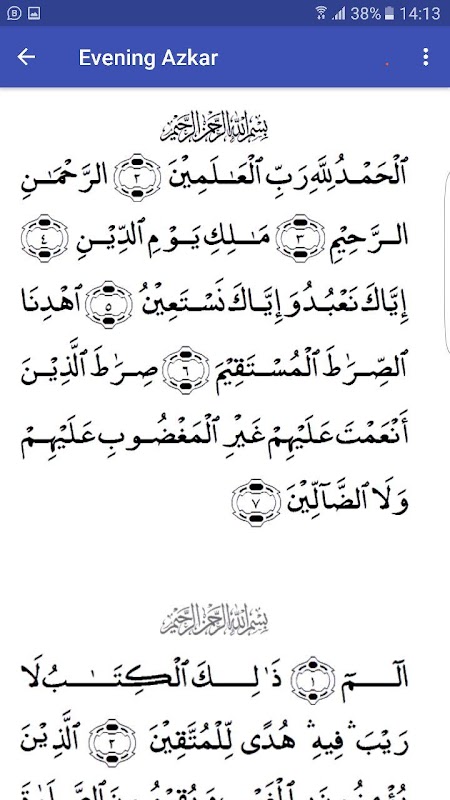 38% 14:13
Evening Azkar
بِسْمِ اللَّهِ الرَّحْمَٰنِ الرَّحِيمِ
ٱلْحَمْدُ لِلَّهِ رَبِّ ٱلْعَـٰلَمِيْنَ ٢ الرَّحْمَـٰنِ
الرَّحِيْمِ ٣ مَـٰلِكِ يَوْمِ ٱلدِّيْنِ ٤
إِيَّاكَ نَعْبُدُ وَ إِيَّاكَ نَسْتَعِيْنُ ٥ ٱهْدِنَا
ٱلصِّرَٰطَ ٱلْمُسْتَقِيْمَ ٦ صِرَٰطَ ٱلَّذِيْنَ
أَنْعَمْتَ عَلَيْهِمْ غَيْرِ ٱلْمَغْضُوبِ عَلَيْهِمْ
وَلَا ٱلضَّآلِّيْنَ ٧
بِسْمِ اللَّهِ الرَّحْمَٰنِ الرَّحِيمِ
الٓـمٓ ١ ذَٰلِكَ ٱلْكِتَـٰبُ لَا
رَيْبَ ۛ فِيهِ ۛ هُدًى لِّلْمُتَّقِيْنَ ٢ ٱلَّذِيْنَ